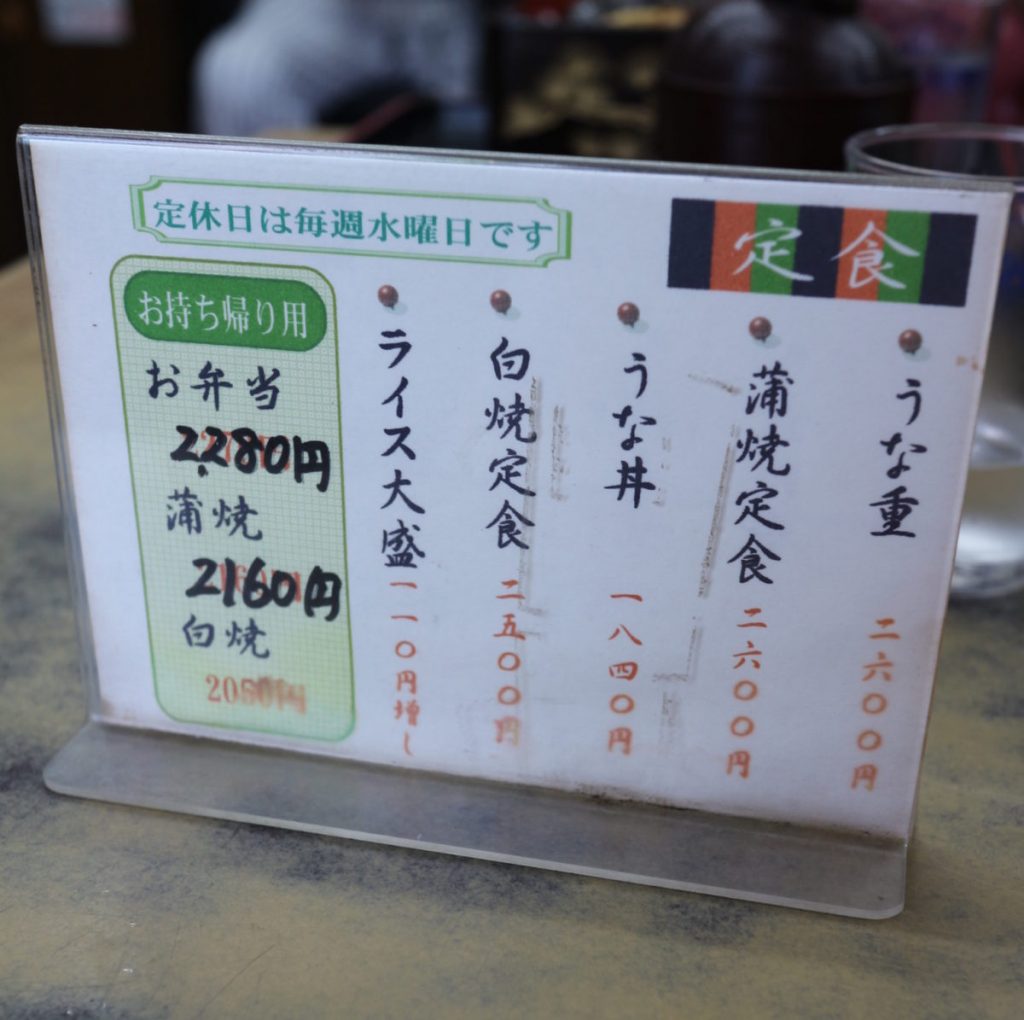 定休日は毎週水曜日です
定食
うな重 二六〇〇円
蒲焼定食 二六〇〇円
うな丼 一八四〇円
白焼定食 二五〇〇円
ライス大盛 一一〇円増し
お持ち帰り用
お弁当
2,280円
蒲焼
2160円
白焼